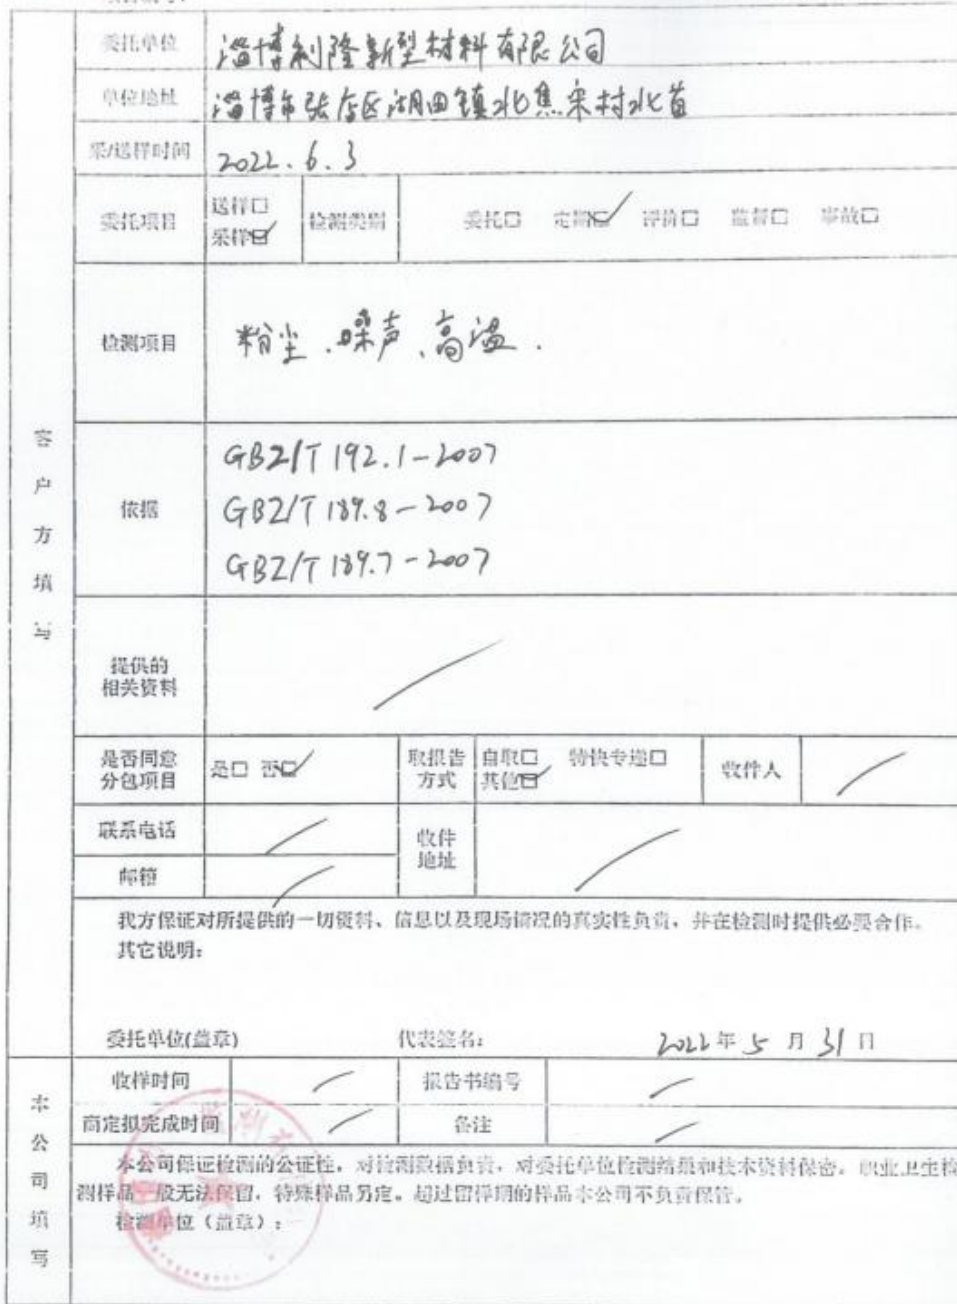 委托单位 淄博利隆新型材料有限公司
单位地址 淄博市张店区湖田镇北焦宋村北首
采/送样时间 2022.6.3
委托项目 送样□ 采样☑ 检测类别 委托□ 定期☑ 评价□ 监督□ 事故□
检测项目 粉尘、噪声、高温.
客户方填写
依据
GBZ/T 192.1-2007
GBZ/T 189.8-2007
GBZ/T 189.7-2007
提供的
相关资料
是否同意
分包项目
是□ 否☑
取报告
方式
自取□ 特快专递□
其他☑
收件人
联系电话
收件
地址
邮箱
我方保证对所提供的一切资料、信息以及现场情况的真实性负责，并在检测时提供必要合作。
其它说明：
委托单位(盖章) 代表签名： 2022年5月31日
本公司填写
收样时间 报告书编号
商定拟完成时间 备注
本公司保证检测的公证性，对检测数据负责，对委托单位检测结果和技术资料保密。职业卫生检
测样品一般无法保留，特殊样品另定。超过留样期的样品本公司不负责保管。
检测单位（盖章）：